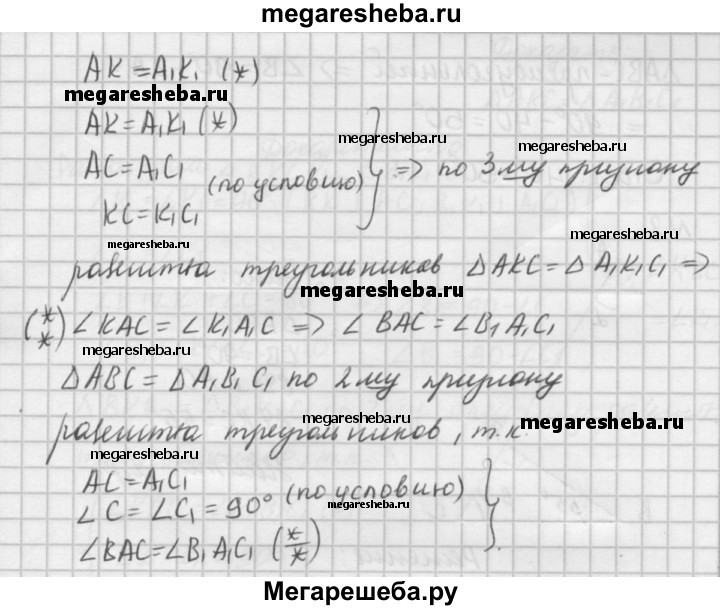 megaresheba.ru
AK = A₁K₁ (*)
megaresheba.ru
AK = A₁K₁ (*)
megaresheba.ru
AC = A₁C₁ (по условию) } => по 3му признаку
KC = K₁C₁
megaresheba.ru
megaresheba.ru
равенства треугольников △AKC = △A₁K₁C₁ =>
megaresheba.ru
(**) ∠KAC = ∠K₁A₁C => ∠BAC = ∠B₁A₁C₁
megaresheba.ru
△ABC = △A₁B₁C₁ по 2му признаку
megaresheba.ru
megaresheba.ru
равенства треугольников, т.к.
AC = A₁C₁
∠C = ∠C₁ = 90° (по условию) }
megaresheba.ru
∠BAC = ∠B₁A₁C₁ (**)
Мегарешеба.ру